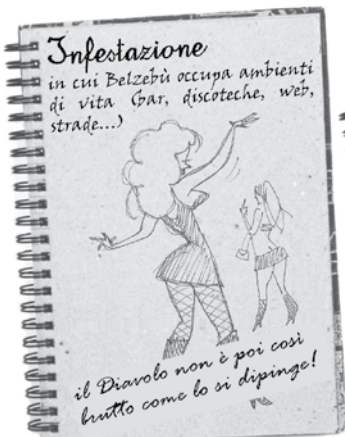 Infestazione
in cui Belzebù occupa ambienti
di vita (bar, discoteche, web,
strade...)
il Diavolo non è poi così
brutto come lo si dipinge!